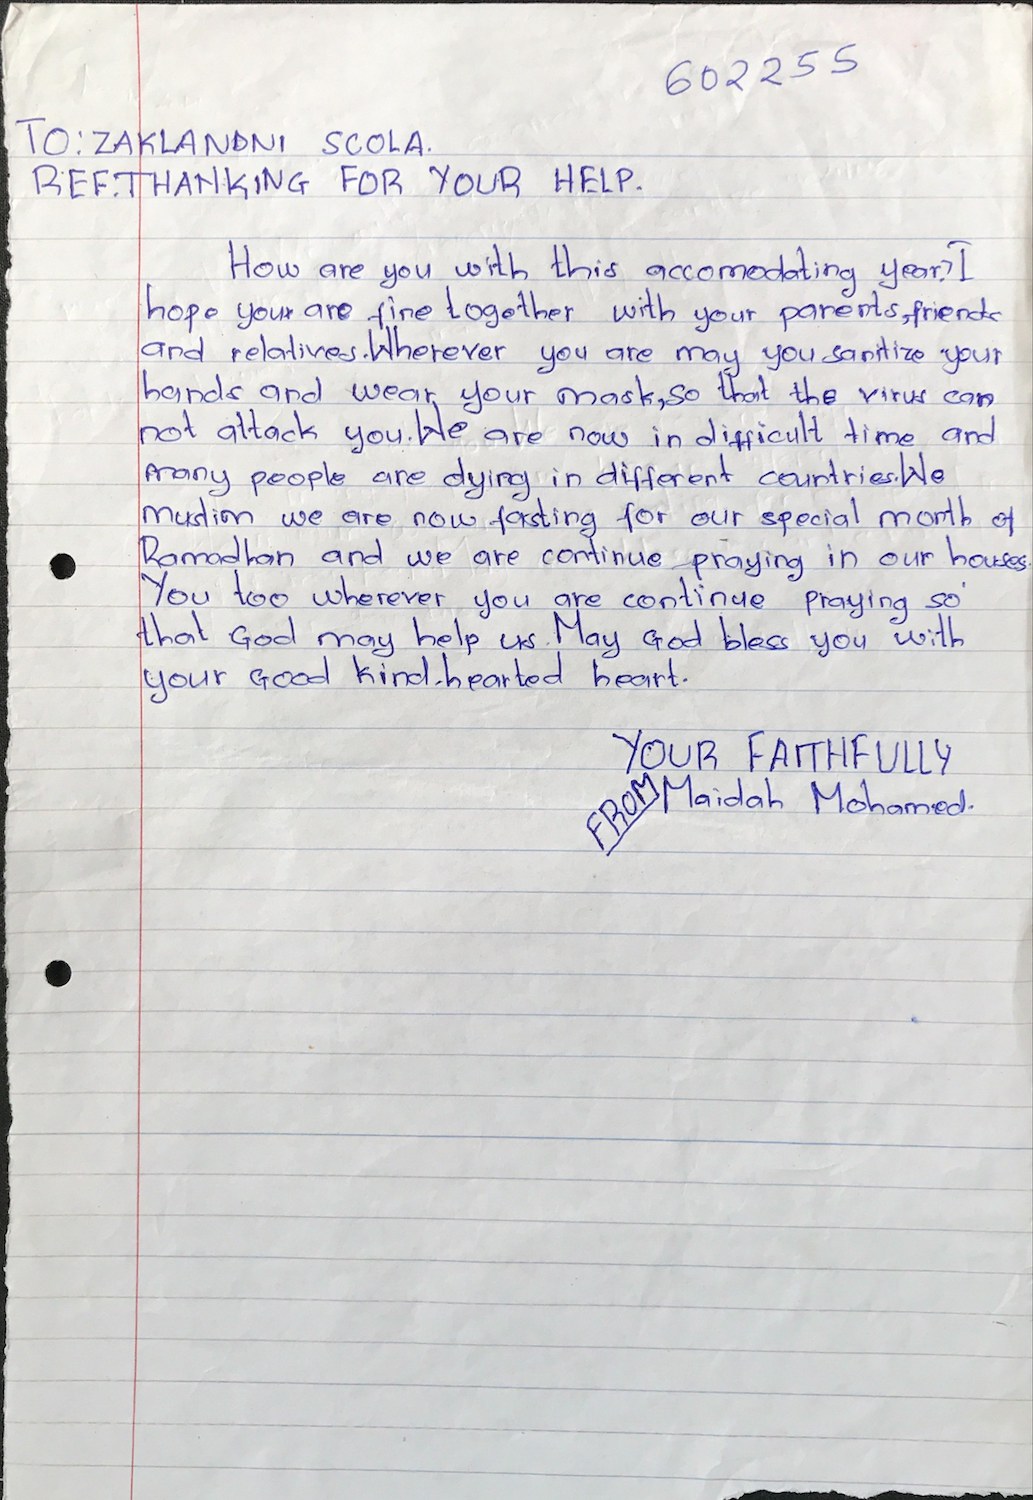 602255
TO: ZAKLANDNI SCOLA.
REF: THANKING FOR YOUR HELP.
How are you with this accomodating year? I
hope your are fine together with your parents, friends
and relatives. Wherever you are may you sanitize your
hands and wear your mask, so that the virus can
not attack you. We are now in difficult time and
many people are dying in different countries. We
muslim we are now fasting for our special month of
Ramadhan and we are continue praying in our houses.
You too wherever you are continue praying so
that God may help us. May God bless you with
your Good kind-hearted heart.
YOUR FAITHFULLY
FROM Maidah Mohamed.